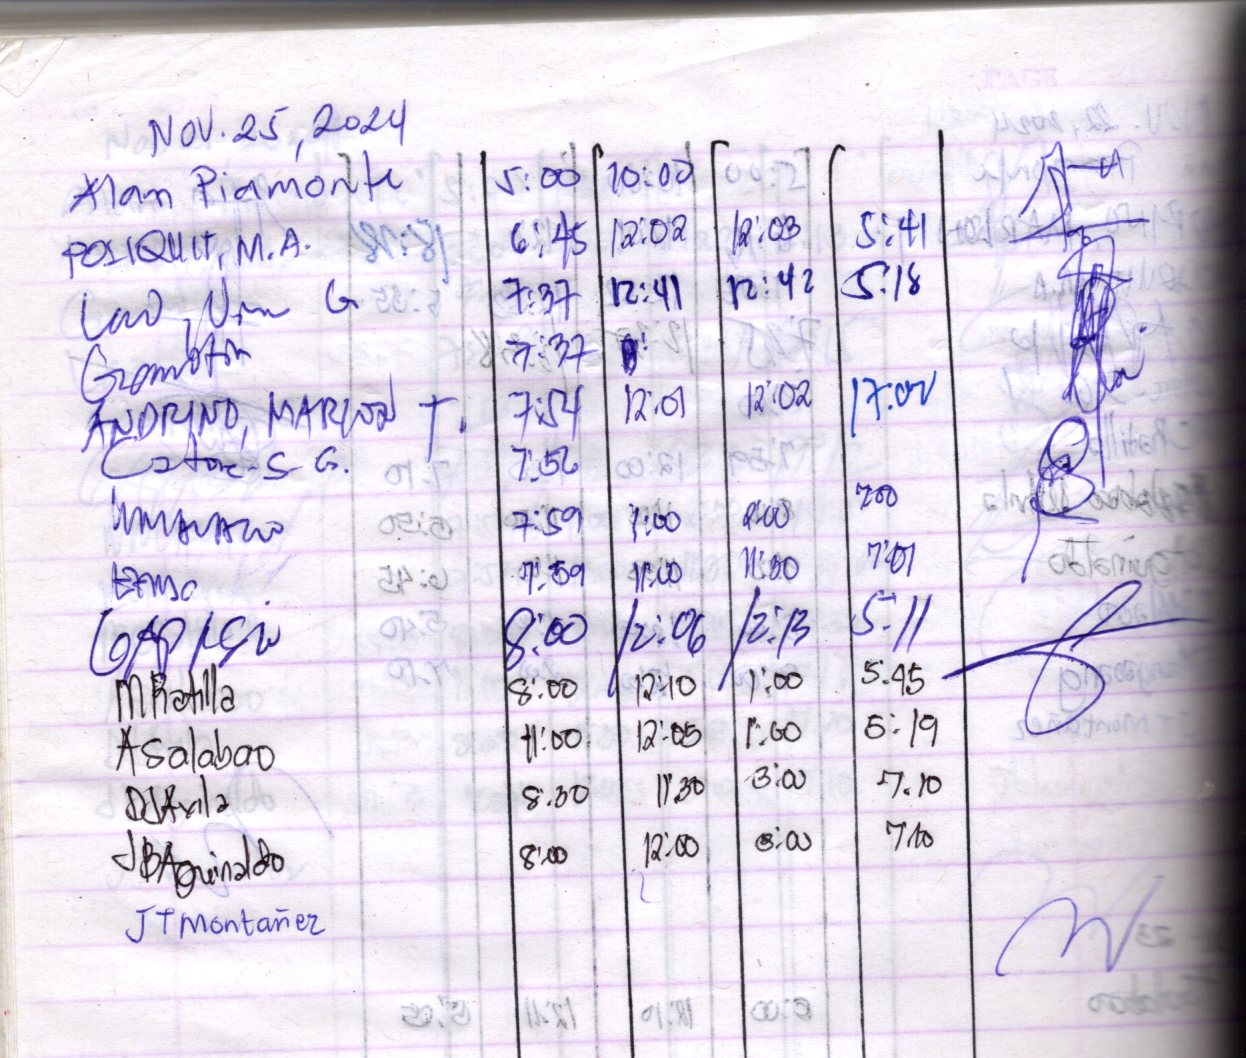 NOV. 25, 2024
Alan Piamonte 5:00 10:00
POSIQUIT, M.A. 6:45 12:02 12:03 5:41
G 7:37 12:41 12:42 5:18
7:37
ANDRINO, MARLON T. 7:54 12:01 12:02 17:02
S G. 7:56
7:59 1:00 2:00 7:00
7:59 11:00 11:30 7:01
8:00 12:06 12:13 5:11
MRatilla 8:00 12:10 1:00 5:45
ASalabao 11:00 12:05 1:00 5:19
DJAvila 8:30 11:30 3:00 7:10
JBAguinaldo 8:00 12:00 3:00 7:10
JTMontañez